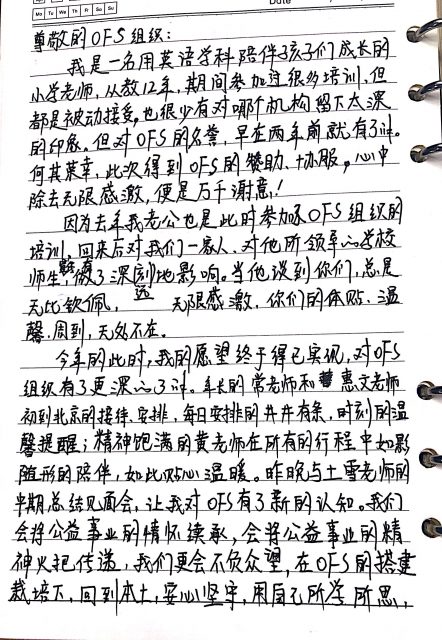 Mo Tu We Th Fr Sa Su
Date
尊敬的OFS组织：
我是一名用英语学科陪伴孩子们成长的
小学老师，从教12年，期间参加过很多培训，但
都是被动接受，也很少有对哪个机构留下太深
的印象。但对OFS的名誉，早在两年前就有了讲。
何其荣幸，此次得到OFS的赞助、协服，心中
除去无限感激，便是万千谢意！
因为去年我老公也是此时参加OFS组织的
培训，回来后对我们一家人、对他所领导的学校
师生，都有做了深刻地影响。当他谈到你们，总是
无比钦佩，无限感激，你们的体贴、温
馨、周到，无处不在。
今年的此时，我的愿望终于得已实现，对OFS
组织有了更深的了讲。年长的常老师和惠文老师
初到北京的接待、安排，每日安排的井井有条，时刻的温
馨提醒；精神饱满的黄老师在所有的行程中如影
随形的陪伴，如此贴心温暖。昨晚与土雪老师的
半期总结见面会，让我对OFS有了新的认知。我们
会将公益事业的情怀续承，会将公益事业的精
神火把传递，我们更会不负众望，在OFS的搭建
栽培下，回到本土，安心坚守，用自己所学所思，